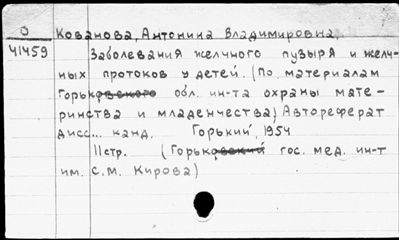 О
41459
Кованова, Антонина Владимировна
Заболевания желчного пузыря и желч-
ных протоков у детей. (По материалам
Горьковского обл. ин-та охраны мате-
ринства и младенчества) Автореферат
дисс... канд. Горький, 1954
11стр. (Горьковский гос. мед. ин-т
им. С.М. Кирова)